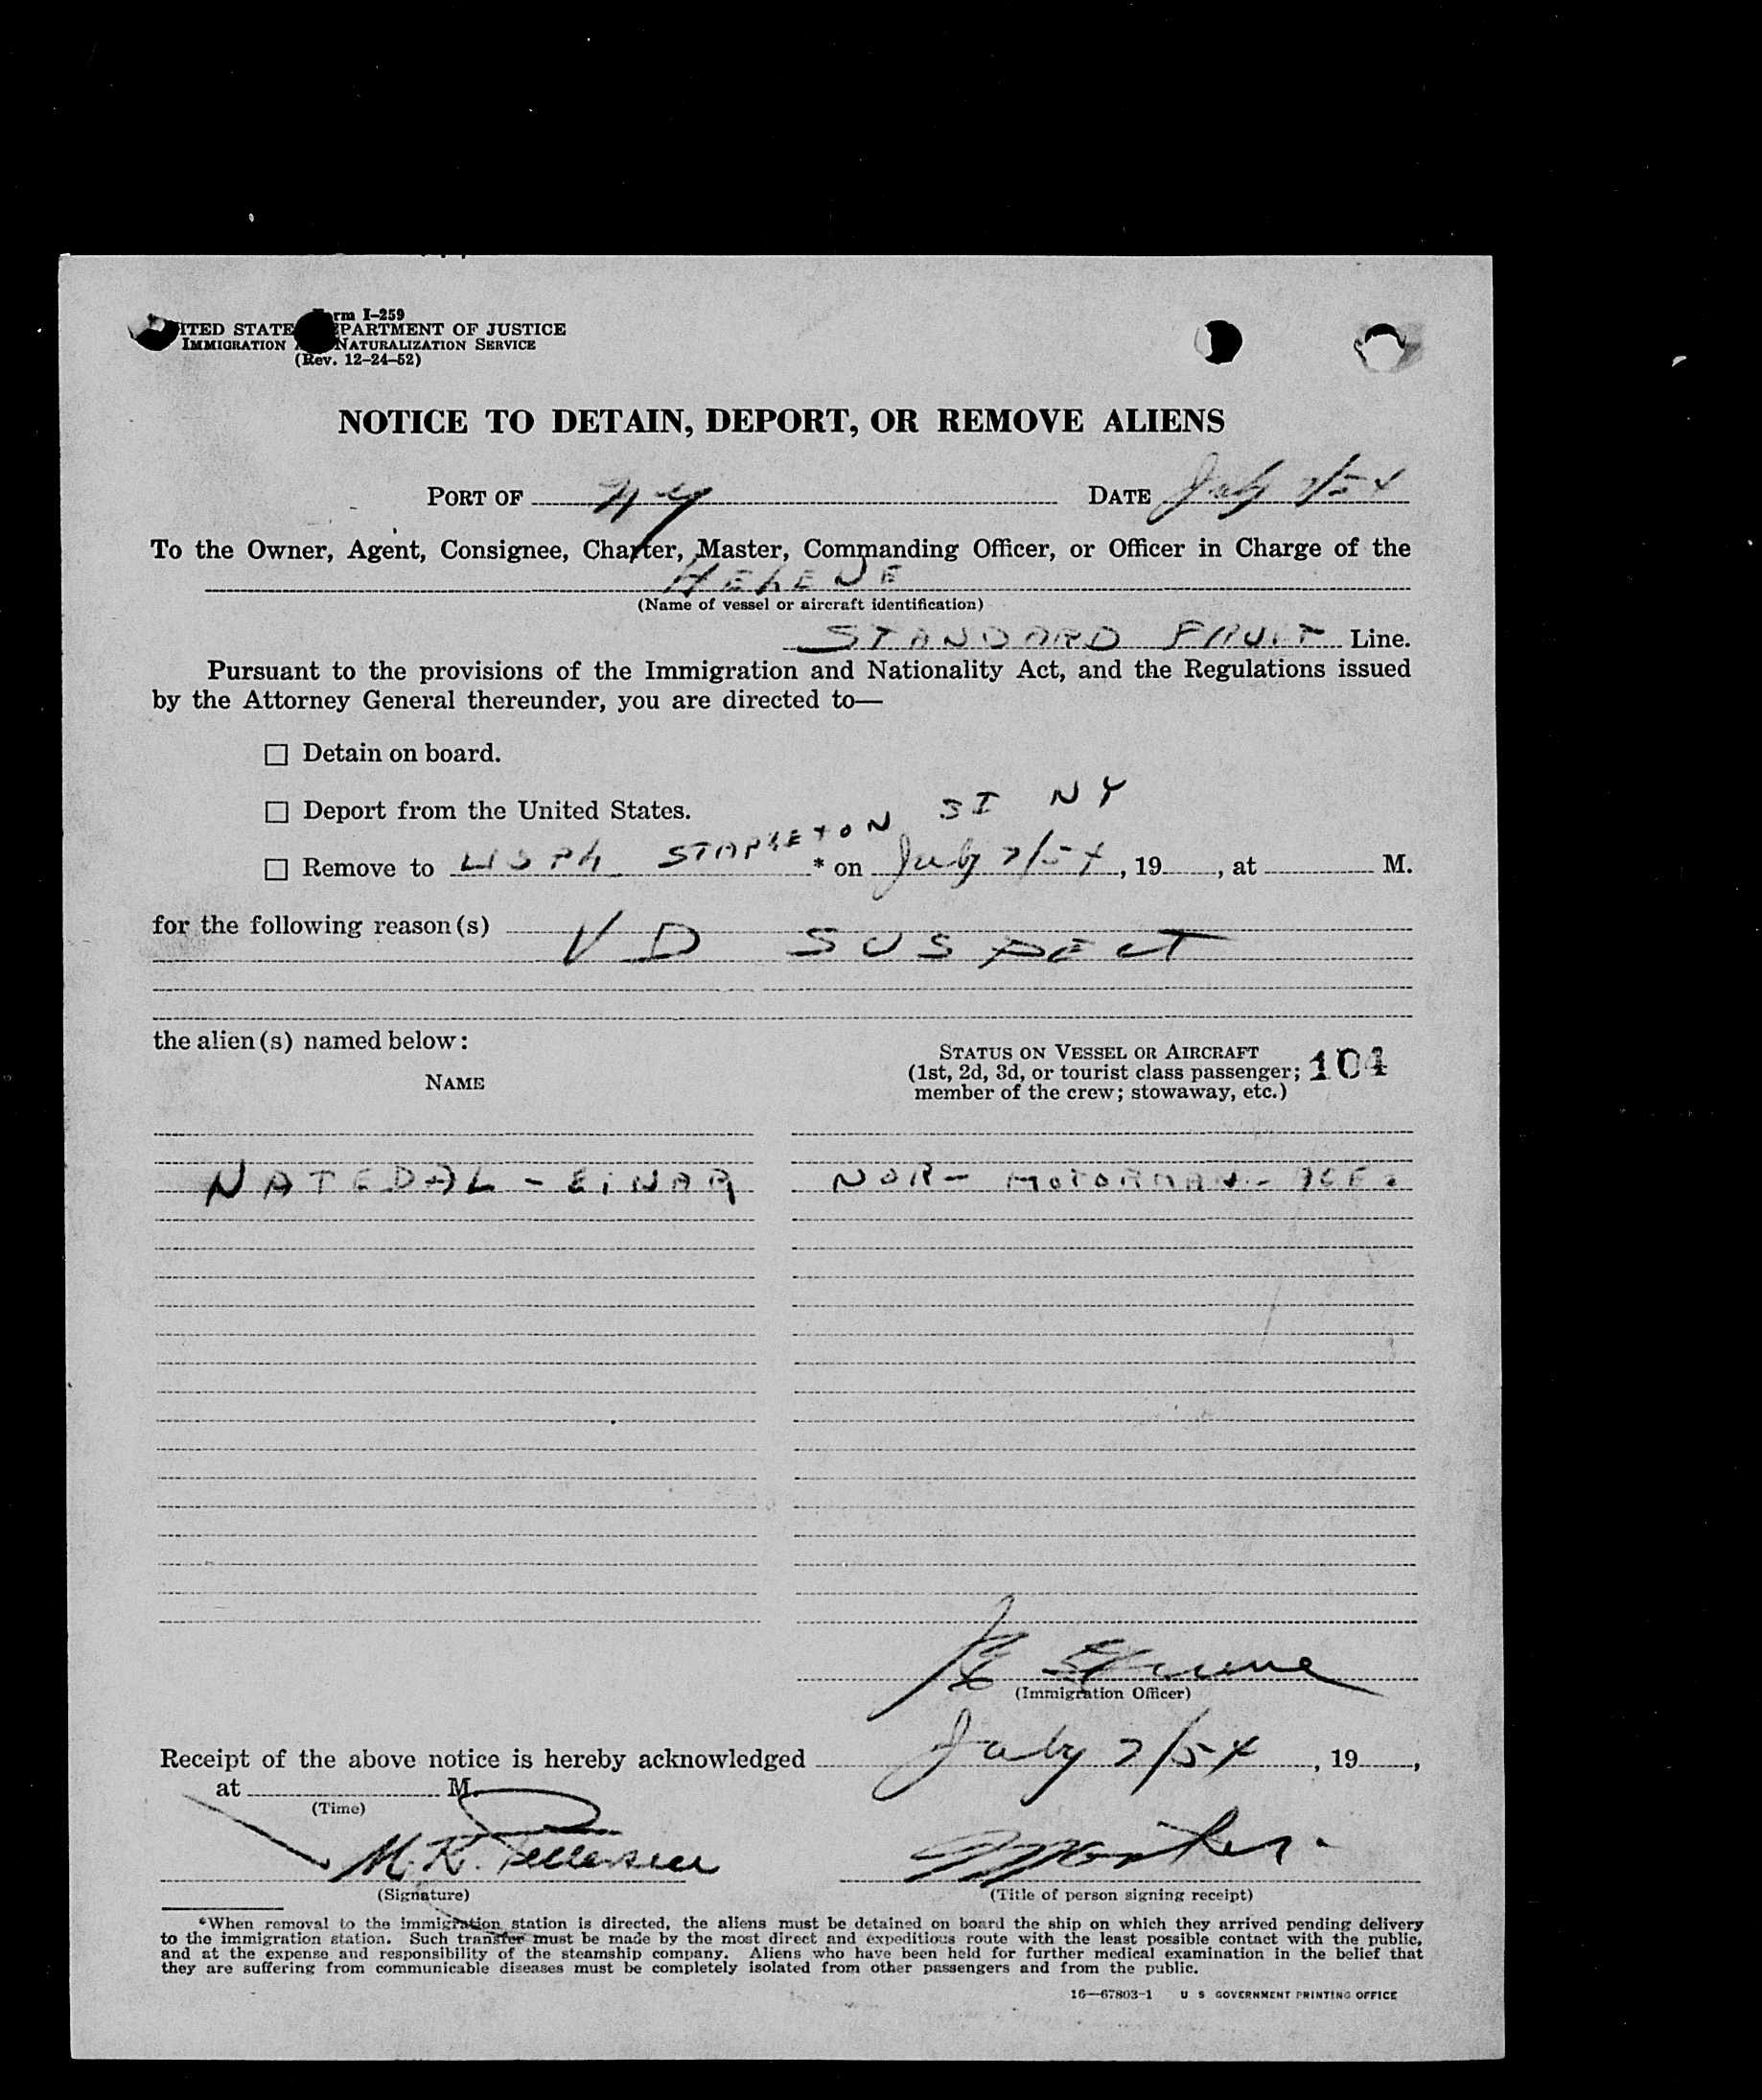 Form I-259
UNITED STATES DEPARTMENT OF JUSTICE
IMMIGRATION AND NATURALIZATION SERVICE
(Rev. 12-24-52)
NOTICE TO DETAIN, DEPORT, OR REMOVE ALIENS
PORT OF NY DATE July 7/54
To the Owner, Agent, Consignee, Charter, Master, Commanding Officer, or Officer in Charge of the
HELENE
(Name of vessel or aircraft identification)
STANDARD FRUIT Line.
Pursuant to the provisions of the Immigration and Nationality Act, and the Regulations issued
by the Attorney General thereunder, you are directed to—
☐ Detain on board.
☐ Deport from the United States.
☐ Remove to USPH STAPLETON SI NY * on July 7/54, 19____, at ____ M.
for the following reason(s) VD SUSPECT
the alien(s) named below:
NAME
STATUS ON VESSEL OR AIRCRAFT
(1st, 2d, 3d, or tourist class passenger;
member of the crew; stowaway, etc.)
104
NATEDAL - EINAR NOR - MOTORMAN -
(Immigration Officer)
Receipt of the above notice is hereby acknowledged July 7/54, 19____,
at ____ M.
(Time)
M. K.
(Signature)
(Title of person signing receipt)
*When removal to the immigration station is directed, the aliens must be detained on board the ship on which they arrived pending delivery
to the immigration station. Such transfer must be made by the most direct and expeditious route with the least possible contact with the public,
and at the expense and responsibility of the steamship company. Aliens who have been held for further medical examination in the belief that
they are suffering from communicable diseases must be completely isolated from other passengers and from the public.
16—67803-1 U S GOVERNMENT PRINTING OFFICE